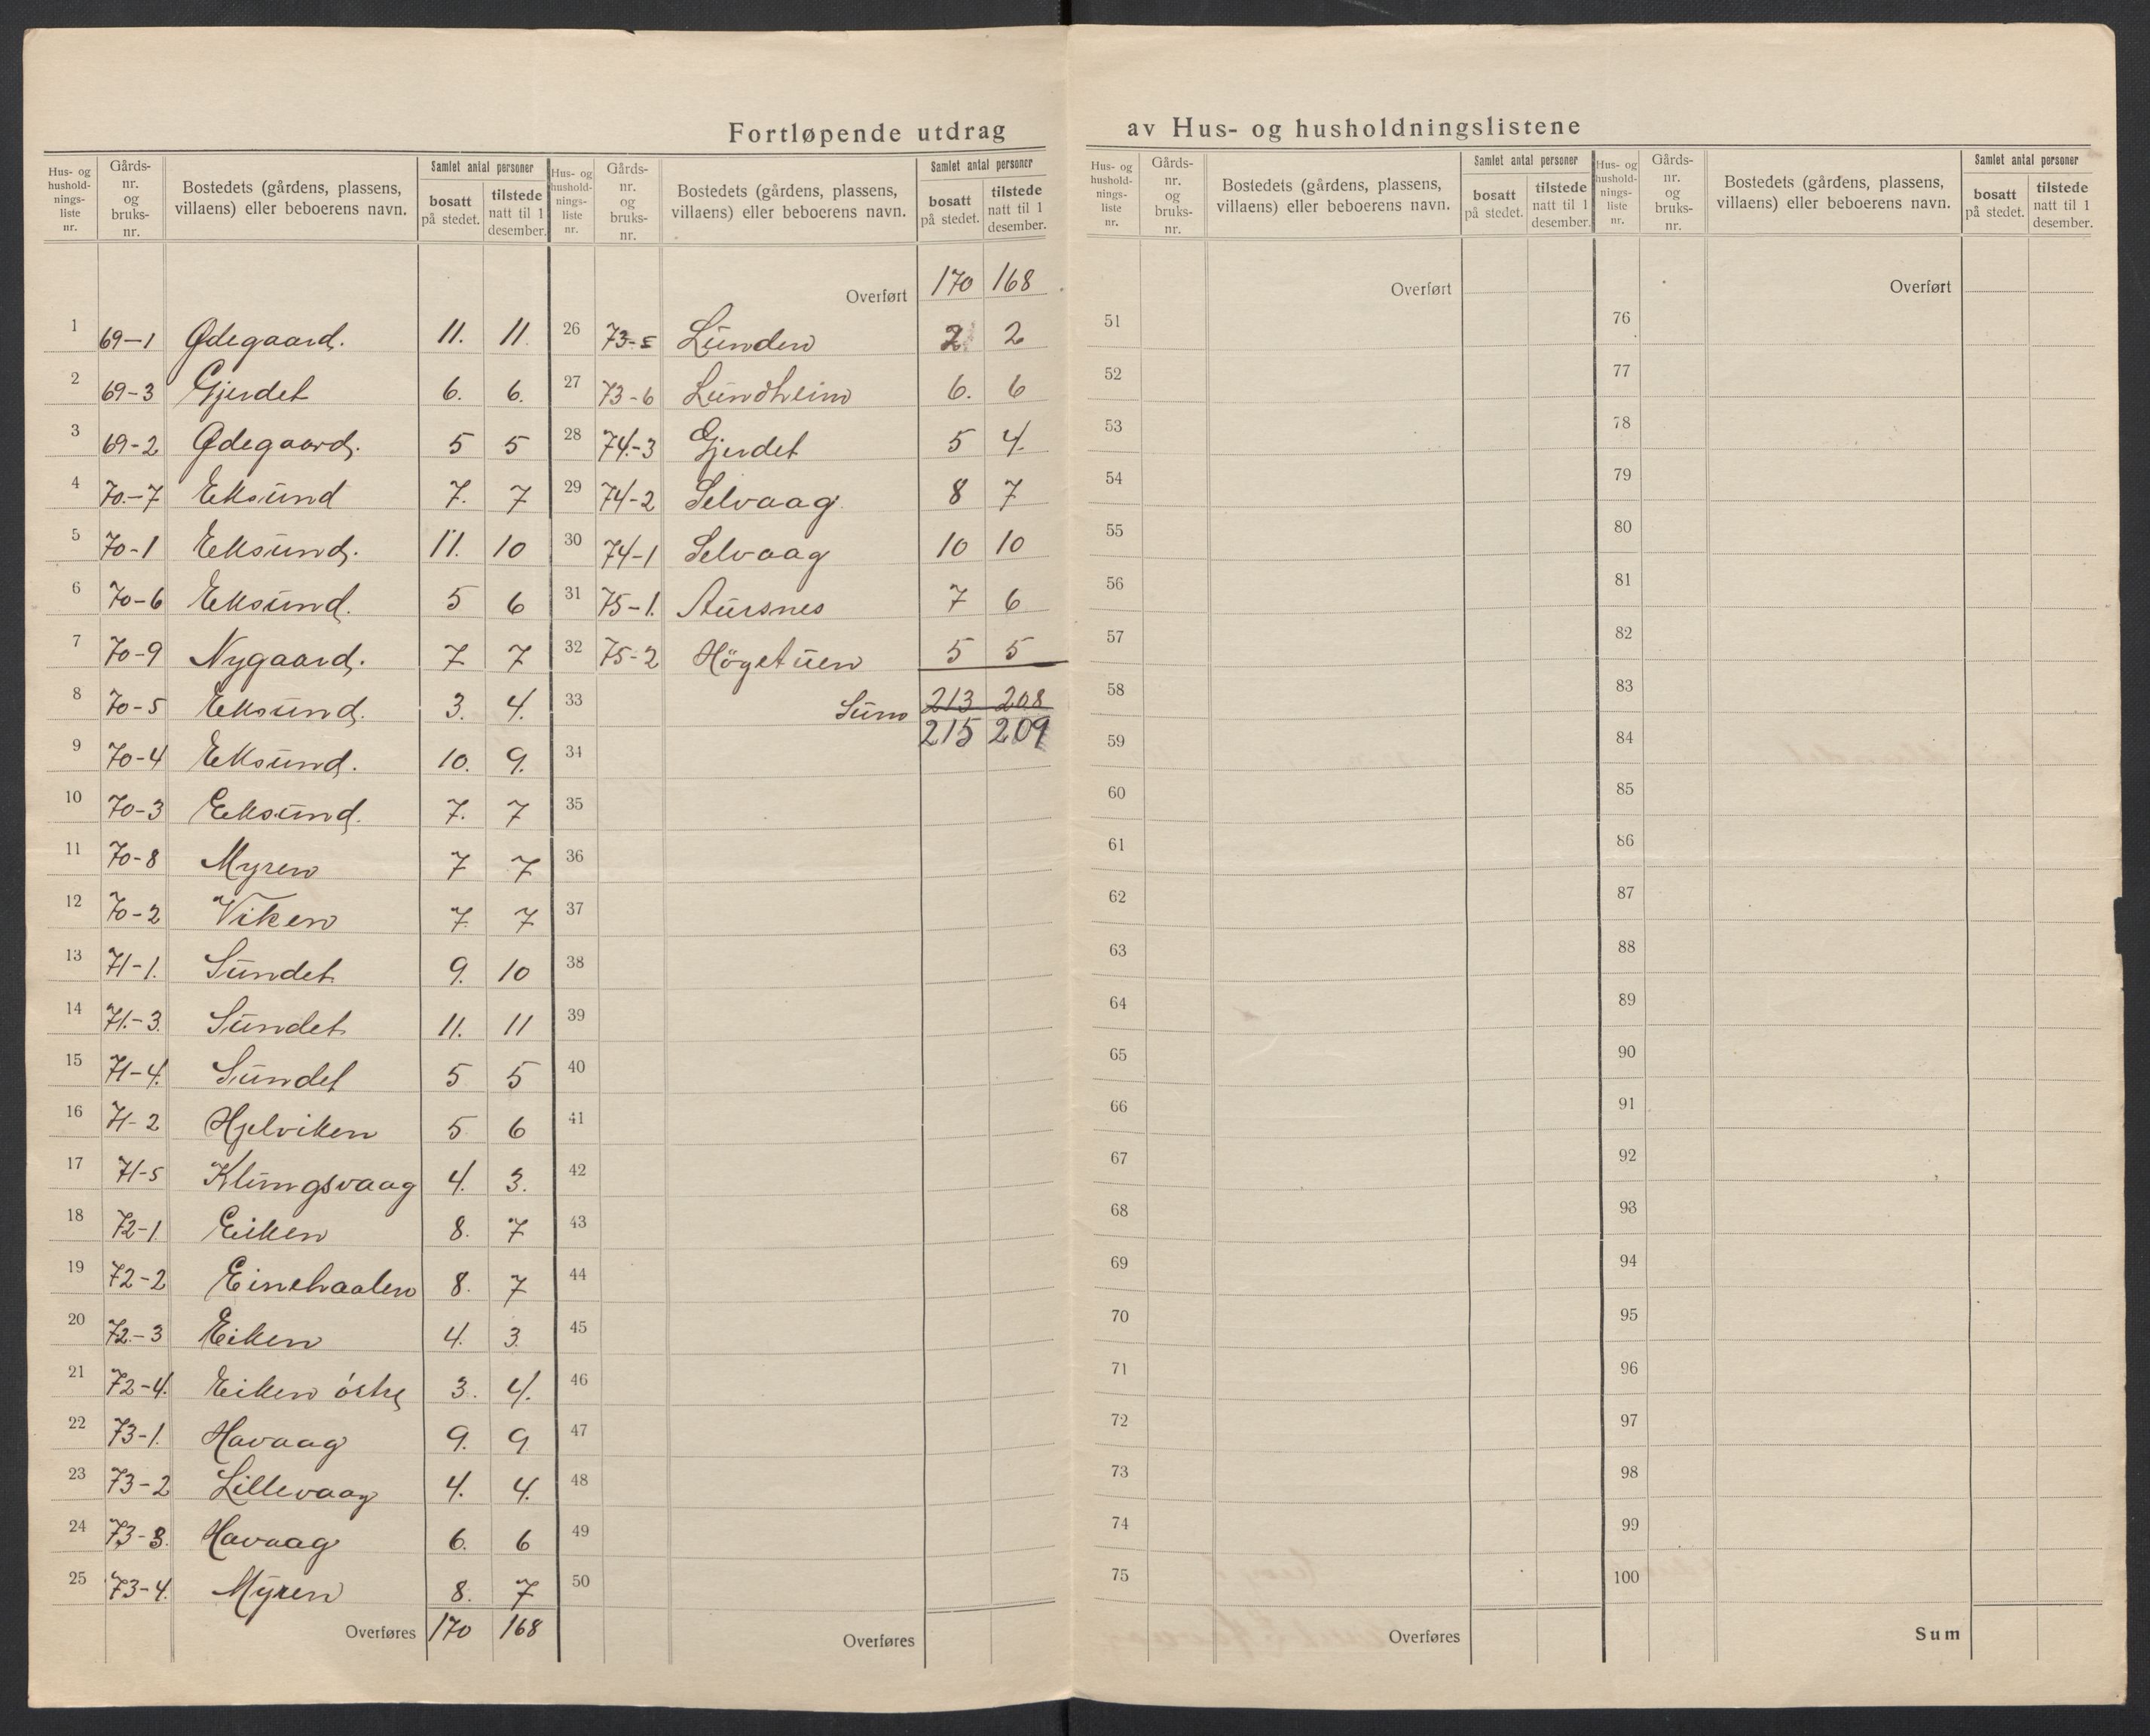 Fortløpende utdrag av Hus- og husholdningslistene
Hus- og hushold-nings-liste nr. Gårds-nr. og bruks-nr. Bostedets (gårdens, plassens, villaens) eller beboerens navn. Samlet antal personer bosatt på stedet. tilstede natt til 1 desember.
1 69-1 Ødegaard. 11. 11.
2 69-3 Gjerdet 6. 6.
3 69-2 Ødegaard. 5 5
4 70-7 Eksund 7. 7
5 70-1 Eksund. 11. 10
6 70-6 Eksund. 5 6
7 70-9 Nygaard. 7 7
8 70-5 Eksund. 3. 4.
9 70-4 Eksund. 10. 9.
10 70-3 Eksund. 7. 7
11 70-8 Myren 7 7
12 70-2 Viken 7 7
13 71-1. Sundet 9. 10
14 71-3. Sundet 11. 11
15 71-4. Sundet 5 5
16 71-2 Hjelviken 5 6
17 71-5 Klungsvaag 4. 3.
18 72-1. Eiken 8. 7
19 72-2 Einehaalen 8. 7
20 72-3 Eiken 4. 3.
21 72-4. Eiken östre 3. 4.
22 73-1. Havaag 9. 9
23 73-2 Lillevaag 4. 4.
24 73-3. Havaag 6. 6
25 73-4. Myren 8. 7
Overføres 170 168
Hus- og hushold-nings-liste nr. Gårds-nr. og bruks-nr. Bostedets (gårdens, plassens, villaens) eller beboerens navn. Samlet antal personer bosatt på stedet. tilstede natt til 1 desember.
Overført 170 168
26 73-5 Lunden 2 2
27 73-6 Lundheim 6. 6
28 74-3 Gjerdet 5 4.
29 74-2 Selvaag 8 7
30 74-1 Selvaag 10 10
31 75-1. Aursnes 7 6
32 75-2 Högetuen 5 5
33 Sum 213 208
215 209
34
35
36
37
38
39
40
41
42
43
44
45
46
47
48
49
50
Overføres
Hus- og hushold-nings-liste nr. Gårds-nr. og bruks-nr. Bostedets (gårdens, plassens, villaens) eller beboerens navn. Samlet antal personer bosatt på stedet. tilstede natt til 1 desember.
Overført
51
52
53
54
55
56
57
58
59
60
61
62
63
64
65
66
67
68
69
70
71
72
73
74
75
Overføres
Hus- og hushold-nings-liste nr. Gårds-nr. og bruks-nr. Bostedets (gårdens, plassens, villaens) eller beboerens navn. Samlet antal personer bosatt på stedet. tilstede natt til 1 desember.
Overført
76
77
78
79
80
81
82
83
84
85
86
87
88
89
90
91
92
93
94
95
96
97
98
99
100
Sum